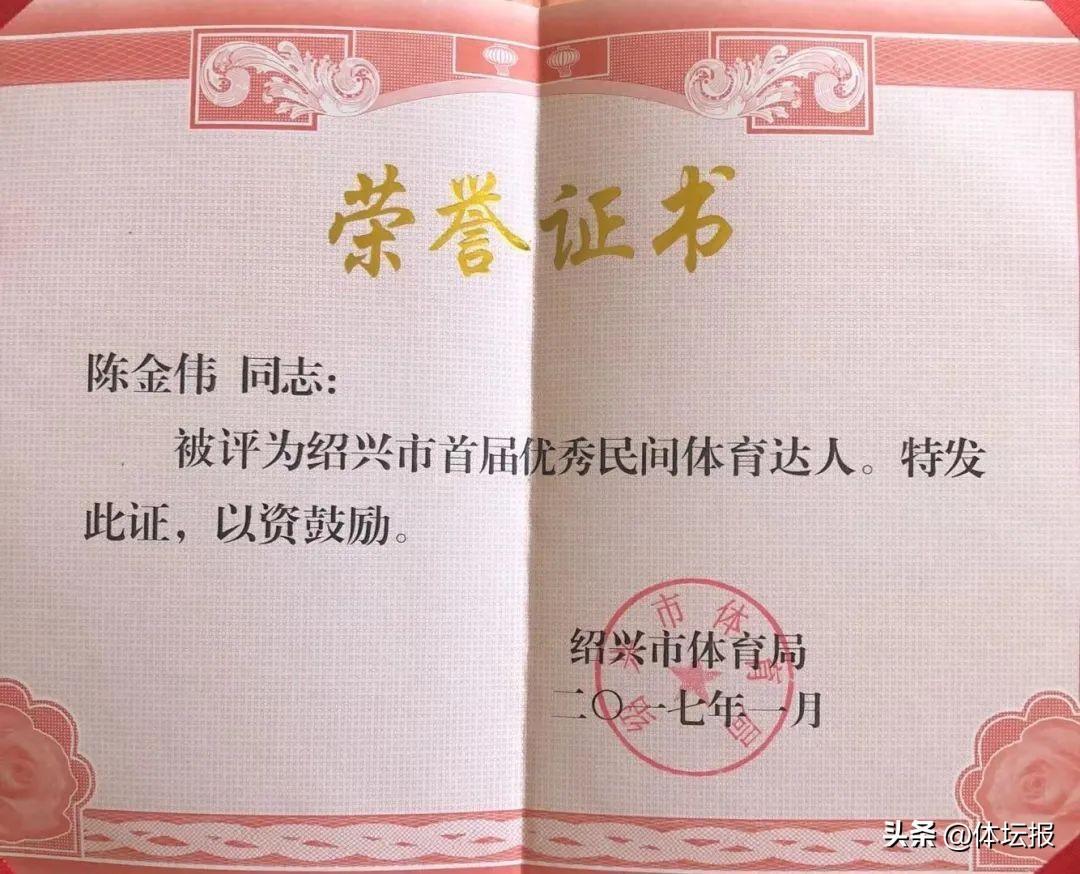 荣誉证书
陈金伟 同志：
被评为绍兴市首届优秀民间体育达人。特发
此证，以资鼓励。
绍兴市体育局
二〇一七年一月
绍兴市体育局
头条 @体坛报